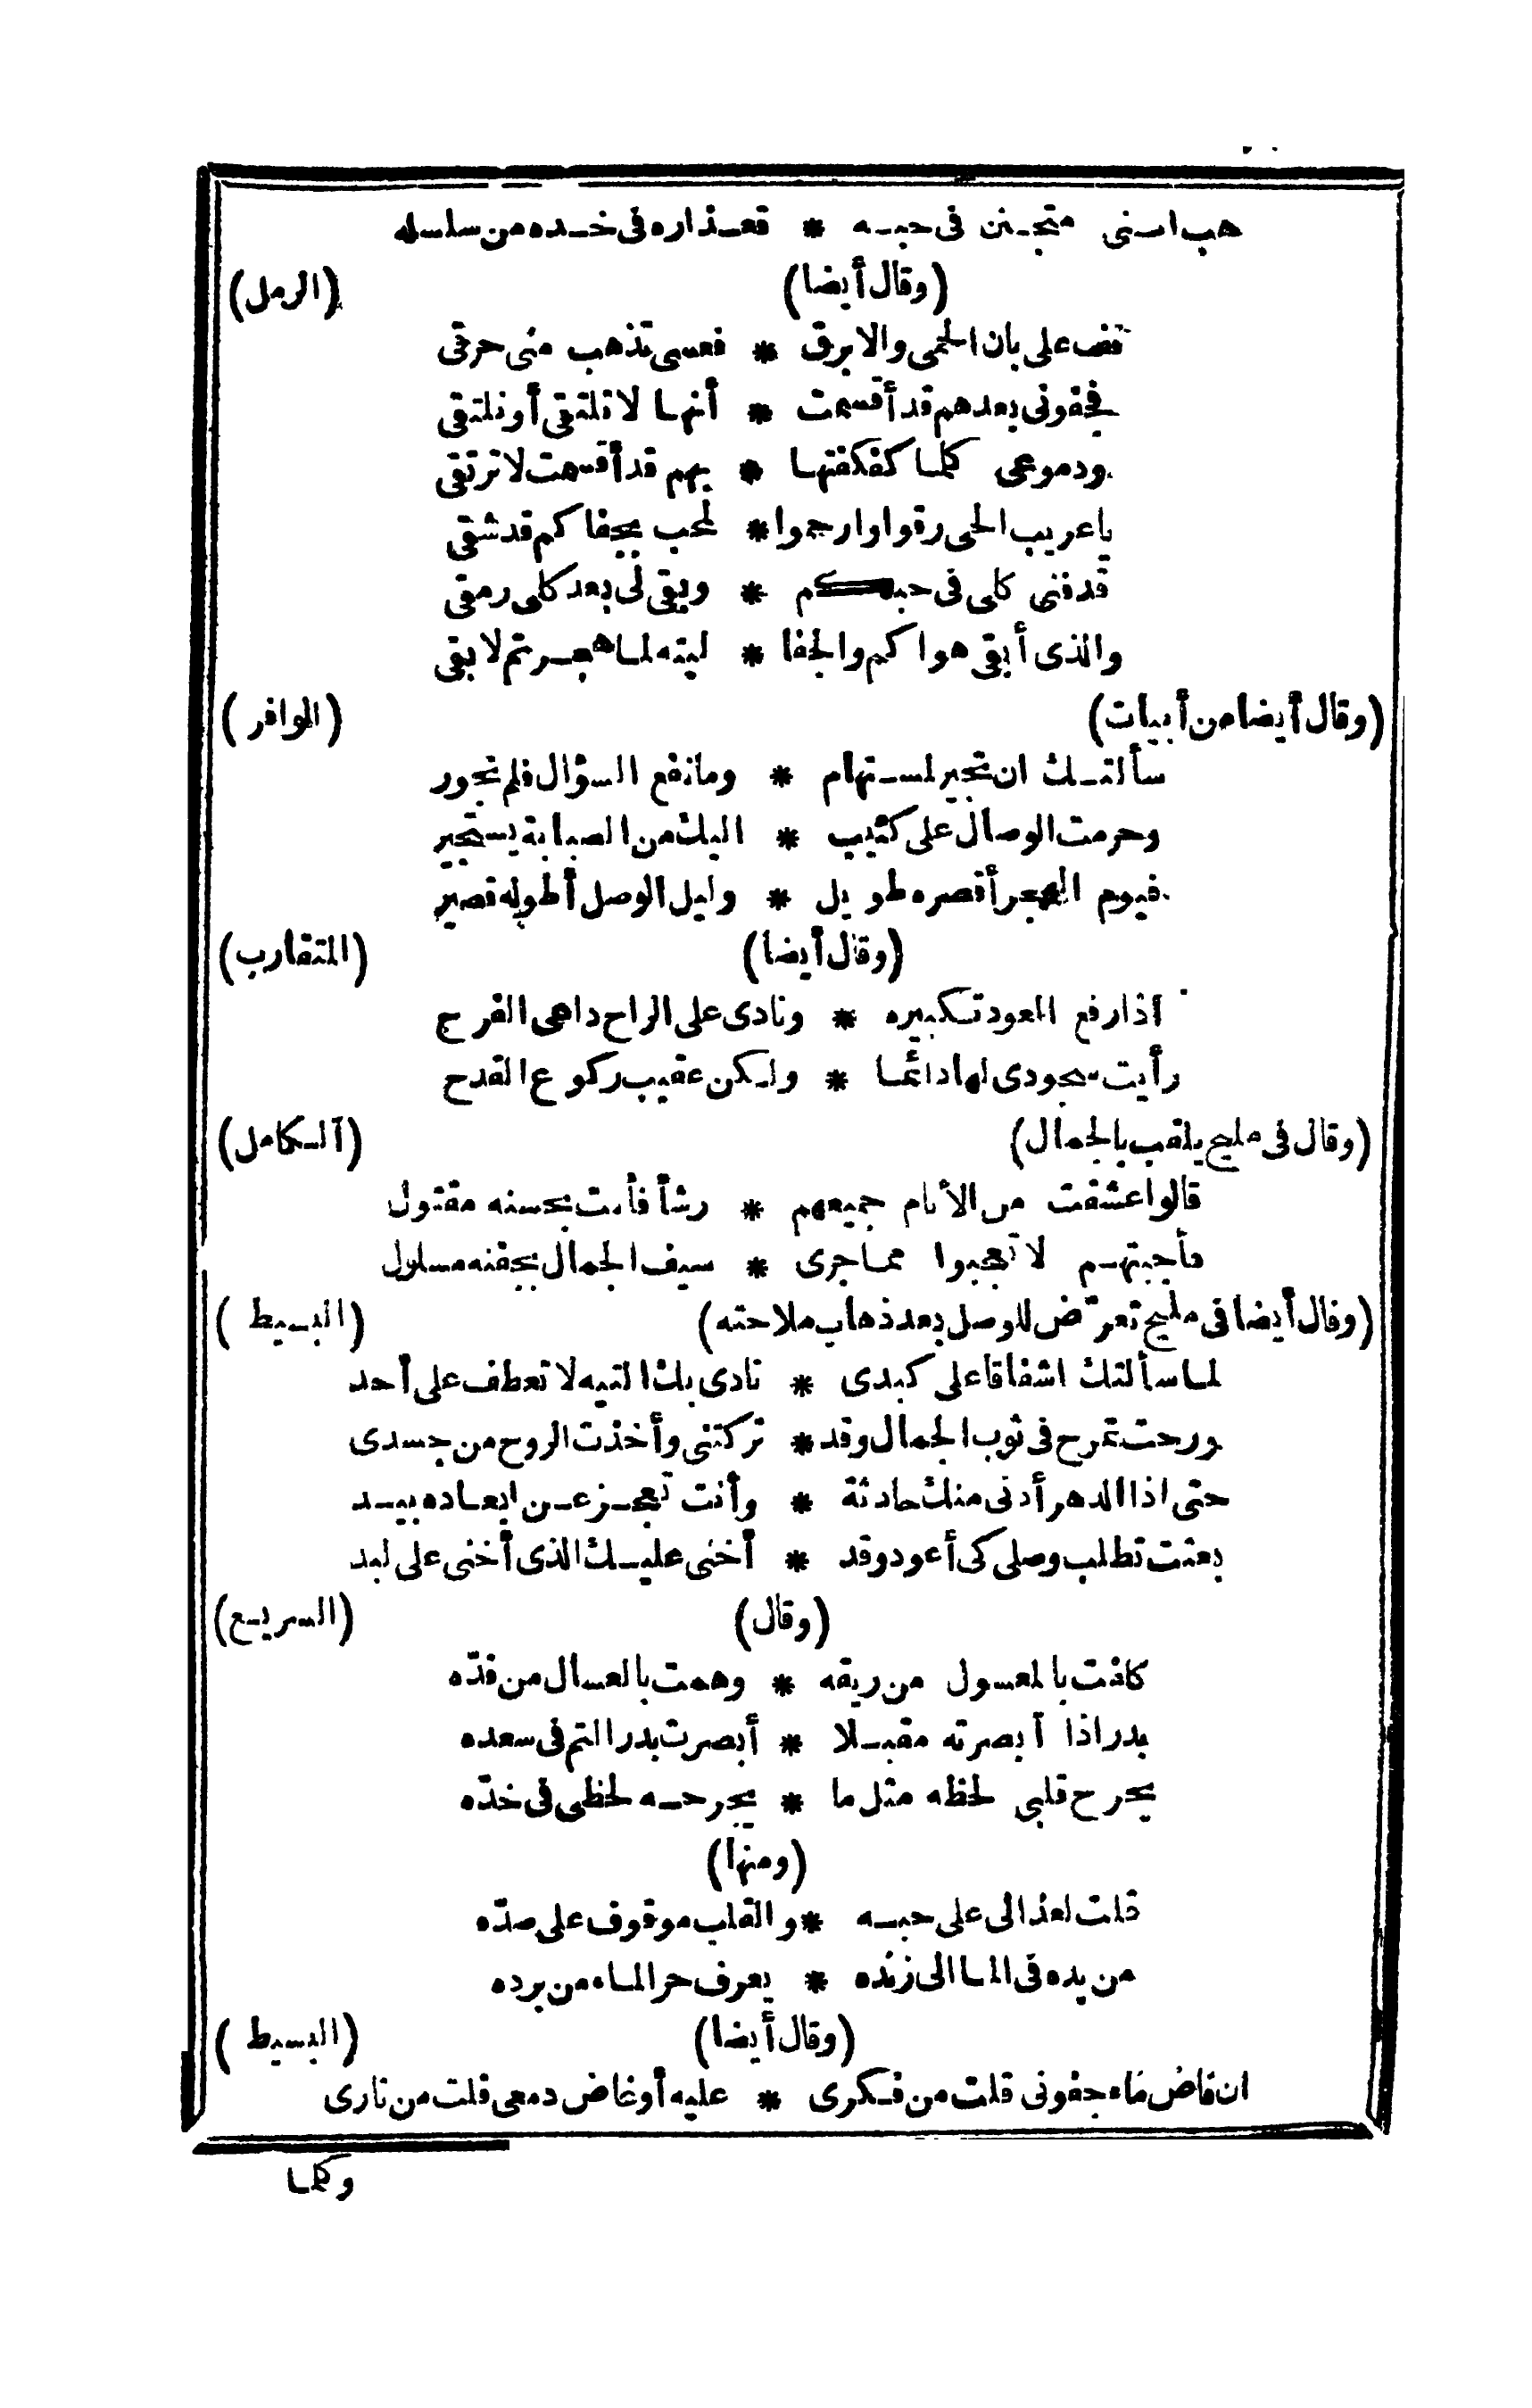 هب اننى متجنن فى حبه * فعذاره فى خده من سلسله
(وقال أيضا) (الرمل)
قف على بان الحمى والابرق * فعسى تذهب منى حرقى
فجفونى بعدهم قد أقسمت * أنها لا تلتقى أو نلتقى
ودموعى كلما كفكفتها * بهم قد أقسمت لا ترتقى
يا عريب الحى رقوا وارحموا * لمحب بجفاكم قد شقى
قد فنى كلى فى حبكم * وبقى لى بعد كلى رمقى
والذى أبقى هواكم والجفا * ليته لما هجرتم لا بقى
(وقال أيضا من أبيات) (الوافر)
سألتك ان تجير لمستهام * وما نفع السؤال فلم تجور
وحرمت الوصال على كئيب * اليك من الصبابة يستجير
فيوم الهجر أقصره طويل * وليل الوصل أطوله قصير
(وقال أيضا) (المتقارب)
اذا رفع العود تكبيره * ونادى على الراح داعى الفرح
رأيت سجودى لها دائما * ولكن عقيب ركوع القدح
(وقال فى مليح يلقب بالجمال) (الكامل)
قالوا عشقت من الأنام جميعهم * رشأ فأنت بحسنه مقتول
فأجبتهم لا تعجبوا مما جرى * سيف الجمال بجفنه مسلول
(وقال أيضا فى مليح تعرّض للوصل بعد ذهاب ملاحته) (البسيط)
لما سألتك اشفاقا على كبدى * نادى بك التيه لا تعطف على أحد
ورحت تمرح فى ثوب الجمال وقد * تركتنى وأخذت الروح من جسدى
حتى اذا الدهر أدنى منك حادثة * وأنت تعجز عن ابعاده بيد
بعثت تطلب وصلى كى أعود وقد * أخنى عليك الذى أخنى على لبد
(وقال) (السريع)
كلفت بالمعسول من ريقه * وهمت بالعسال من قدّه
بدر اذا أبصرته مقبلا * أبصرت بدر التم فى سعده
يجرح قلبى لحظه مثل ما * يجرحه لحظى فى خدّه
(ومنها)
قلت لعذالى على حبه * والقلب موقوف على صدّه
من يده فى الما الى زنده * يعرف حر الماء من برده
(وقال أيضا) (البسيط)
ان فاض ماء جفونى قلت من فكرى * عليه أو غاض دمعى قلت من نارى
وكلما